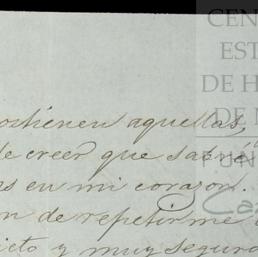 CEN
EST
DE H
DE M
UN
Ca
sostienen aquellas,
de creer que sabré
as en mi corazon.
n de repetirme
icto y muy seguro